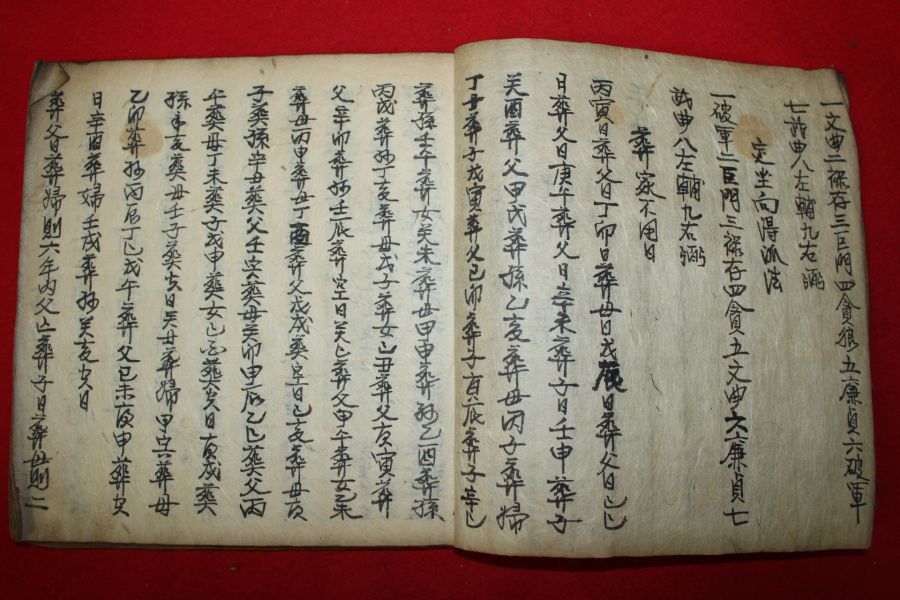 一文曲二祿存三巨門四貪狼五廉貞六破軍
七武曲八左輔九右弼
定坐向得水法
一破軍二巨門三祿存四貪五文曲六廉貞七
武曲八左輔九右弼
葬家不用日
丙寅日葬父日丁卯日葬母日戊辰日葬父日己巳
日葬父日庚午葬父日辛未葬子日壬申葬子
癸酉葬父甲戌葬孫乙亥葬母丙子葬婦
丁丑葬子戊寅葬父己卯葬子庚辰葬子辛巳
葬孫壬午葬女癸未葬母甲申葬孙乙酉葬孫
丙戌葬孙丁亥葬母戊子葬女己丑葬父庚寅葬
父辛卯葬孙壬辰葬空日癸巳葬父甲午葬女乙未
葬母丙申葬母丁酉葬父戊戌葬空日己亥葬母庚
子葬孫辛丑葬父壬寅葬母癸卯甲辰乙巳葬父丙
午葬母丁未葬子戊申葬女己酉葬亥日庚戌葬
孫辛亥葬母壬子葬亥日癸丑葬婦甲寅葬母
乙卯葬孙丙辰丁巳戊午葬父己未庚申葬亥
日辛酉葬婦壬戌葬孙癸亥亥日
葬父日葬婦則六年內父亡葬子日葬母則二